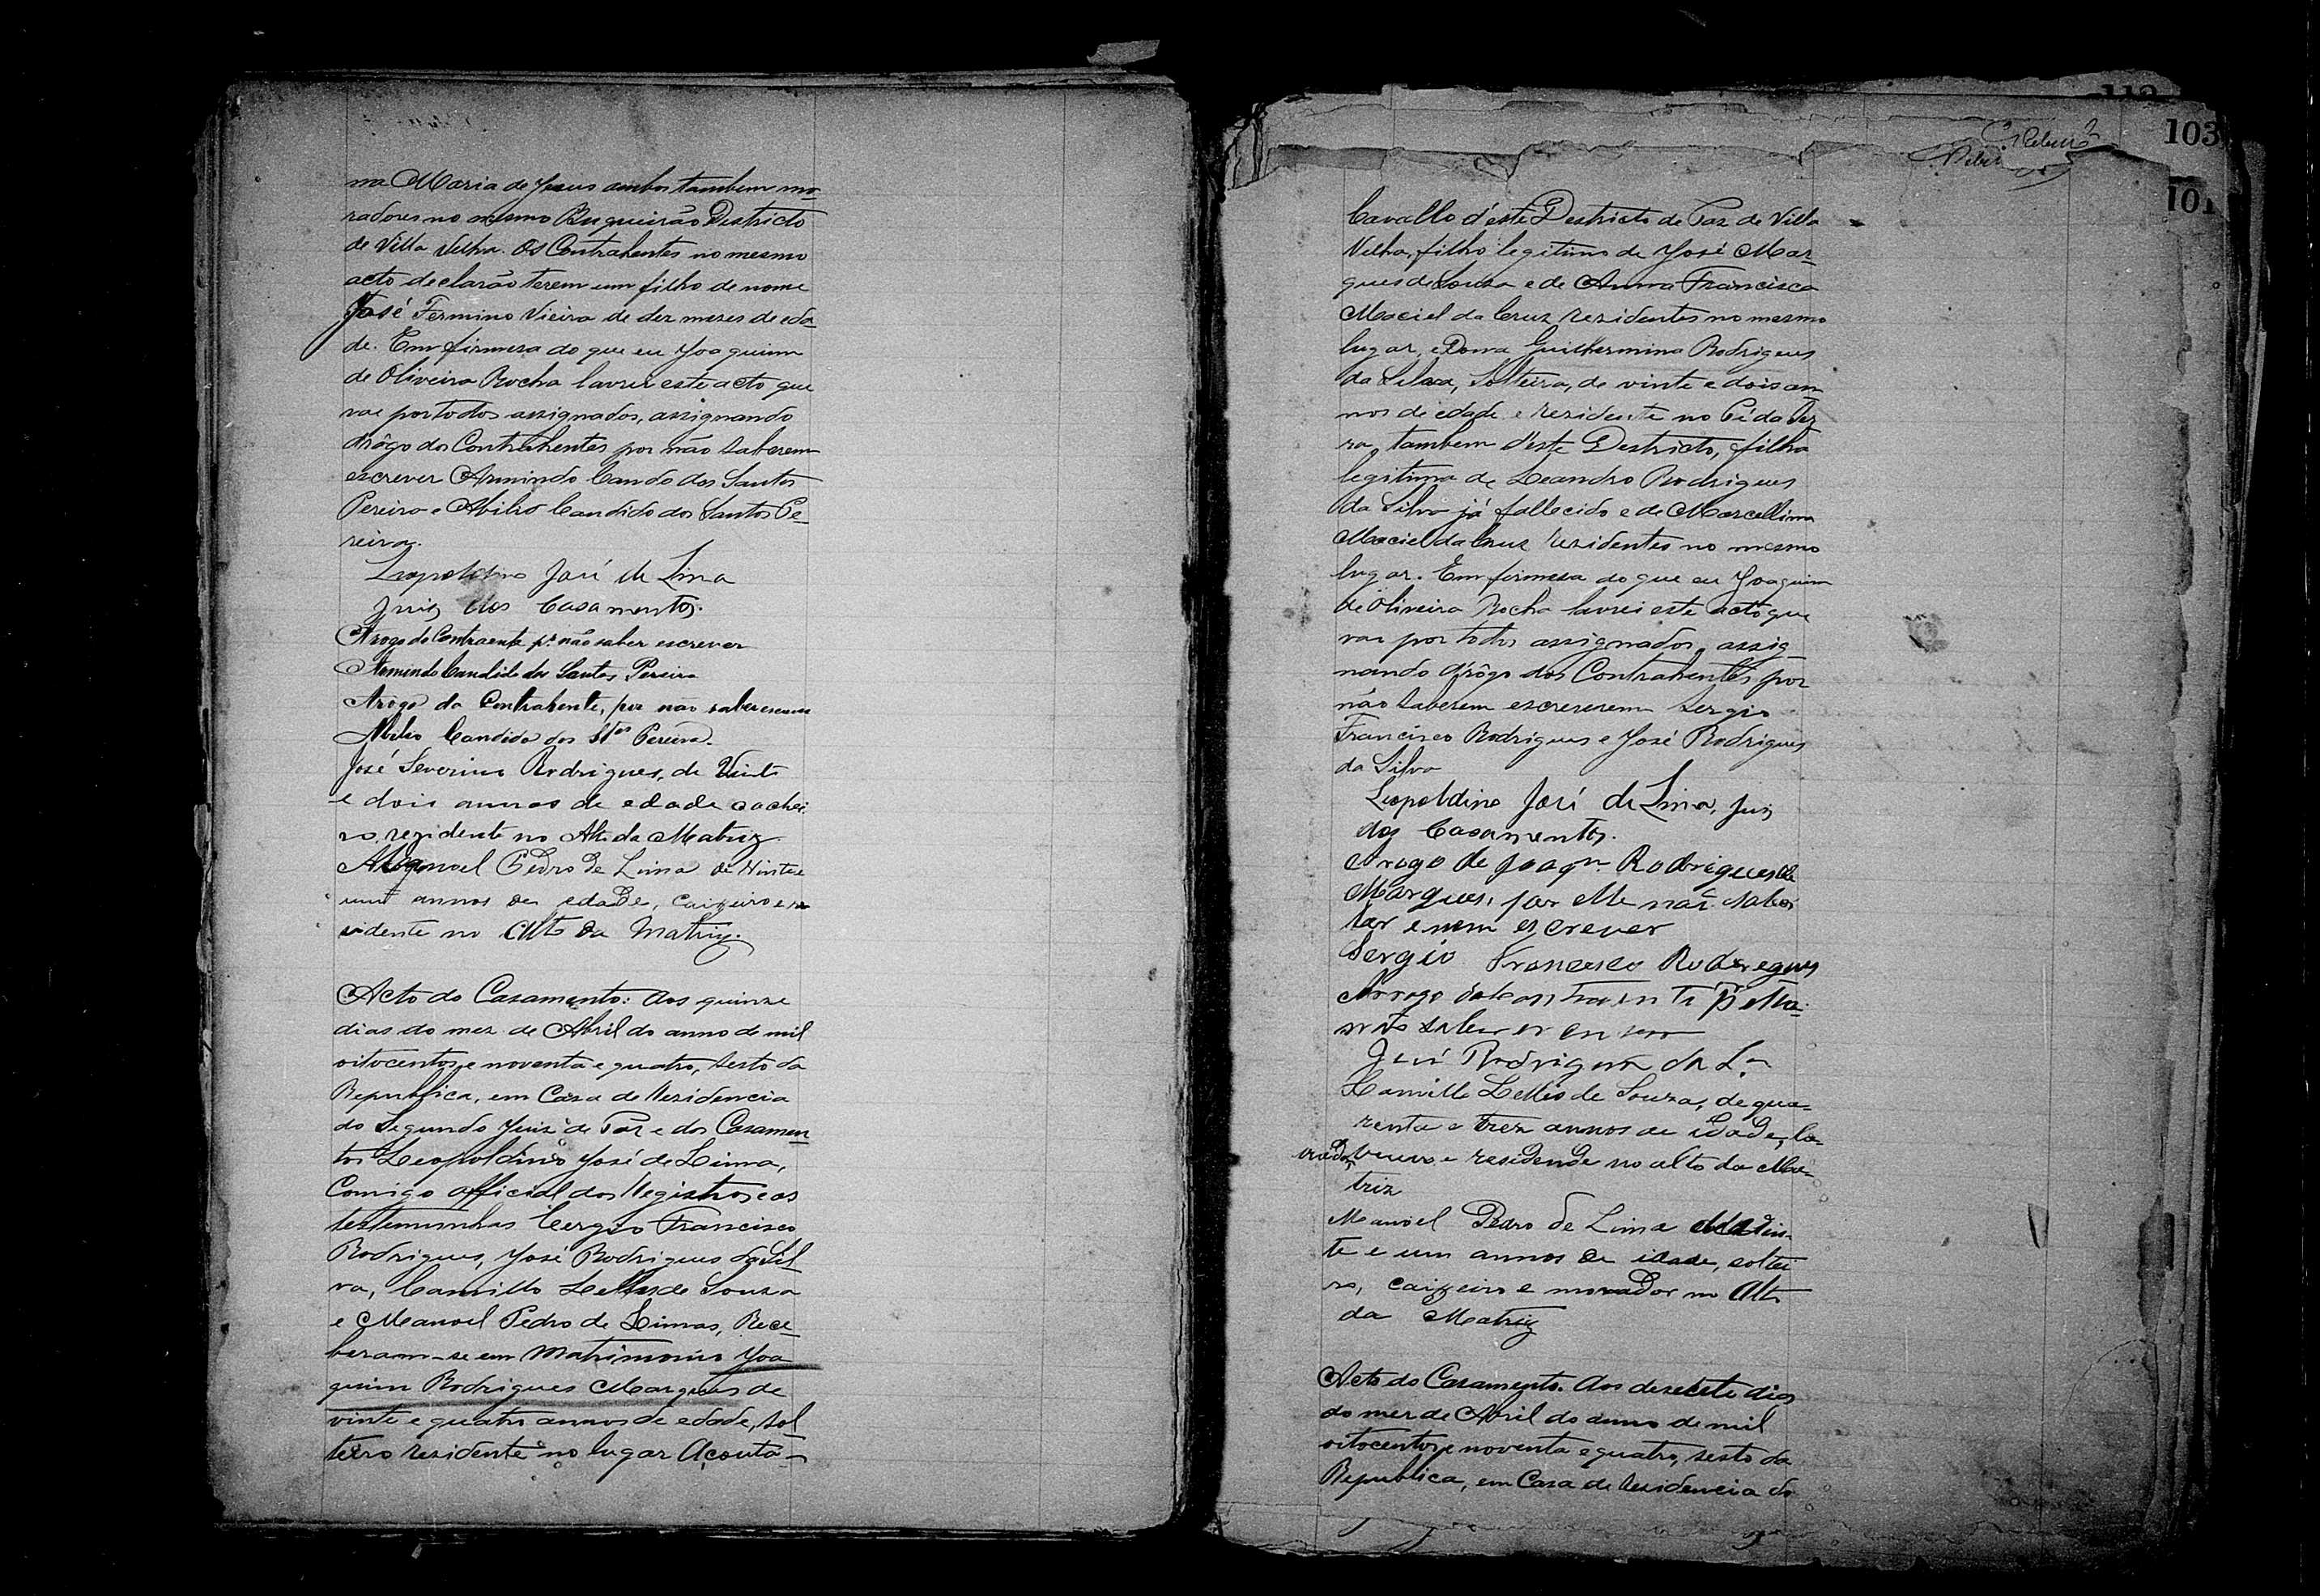 na Maria de Jesus ambos tambem mo-
radores no mesmo Buqueirão Districto
de Villa Velha. Os Contrahentes no mesmo
acto declarão terem um filho de nome
José Fermino Vieira de dez mezes de eda-
de. Em firmeza do que eu Joaquim
de Oliveira Rocha lavrei este acto que
vae por todos assignados, assignando
árôgo dos Contrahentes por não saberem
escrever Armindo Cando dos Santos
Pereira e Abilio Candido dos Santos Pe-
reira.
Leopoldino José de Lima
Juiz dos Casamentos.
Arogo do Contraente pr. não saber escrever
Armindo Candido dos Santos Pereira
Arogo da Contrahente, por não saber escrever
Abilio Candido dos Stos Pereira.
José Severino Rodrigues, de Vinte
e dois annos de edade cachei-
ro, rezidente no Alto da Matriz.
Manoel Pedro de Lima de Vinte e
um annos de edade, caixeiro e re
sidente no Alto da Matriz.
Acto do Casamento: Aos quinze
dias do mez de Abril do anno de mil
oitocentos e noventa e quatro, sesto da
Republica, em Caza de Rezidencia
do Segundo Juiz de Paz e dos Casamen-
tos Leopoldino José de Lima,
Comigo official dos Registros e as
testemunhas Cergio Francisco
Rodrigues, José Rodrigues da Sil-
va, Camillo Lellis de Souza
e Manoel Pedro de Limas, Rece-
beram-se em Matrimonio Joa-
quim Rodrigues Marques de
vinte e quatro annos de edade, sol-
teiro rezidente no lugar Açouta-
103
101
Cavallo d'este Destricto de Paz de Villa
Velha, filho legitimo de José Mar-
ques de Souza e de Anna Francisca
Maciel da Cruz rezidentes no mesmo
lugar, e Dona Guilhermina Rodrigues
da Silva, Solteira, de vinte e dois an-
nos de edade e rezidente no Pé da Ser-
ra, tambem d'este Destricto, filha
legitima de Leandro Rodrigues
da Silva já fallecido e de Marcellina
Maciel da Cruz rezidentes no mesmo
lugar. Em firmeza do que eu Joaquim
de Oliveira Rocha lavrei este acto que
vae por todos assignados, assig-
nando árôgo dos Contrahentes por
não saberem escreverem Sergio
Francisco Rodrigues e José Rodrigues
da Silva
Leopoldino José de Lima, Juiz
dos Casamentos.
Arogo de Joaqm. Rodrigues de
Marques, por elle não saber
ler e nem escrever
Sergio Francesco Rodregues
Arrogo da Contraente p. ella
não saber
José Rodrigues da Sa
Camillo Lellis de Souza, de qua-
renta e trez annos de idade, la-
vrador e residende no alto da Ma-
triz
Manoel Pedro de Lima de vin-
te e um annos de idade, soltei
ro, caixeiro e morador no Alto
da Matriz
Acto do Casamento. Aos desesete dias
do mez de Abril do anno de mil
oitocentos e noventa e quatro, sesto da
Republica, em Casa de Rezidencia do